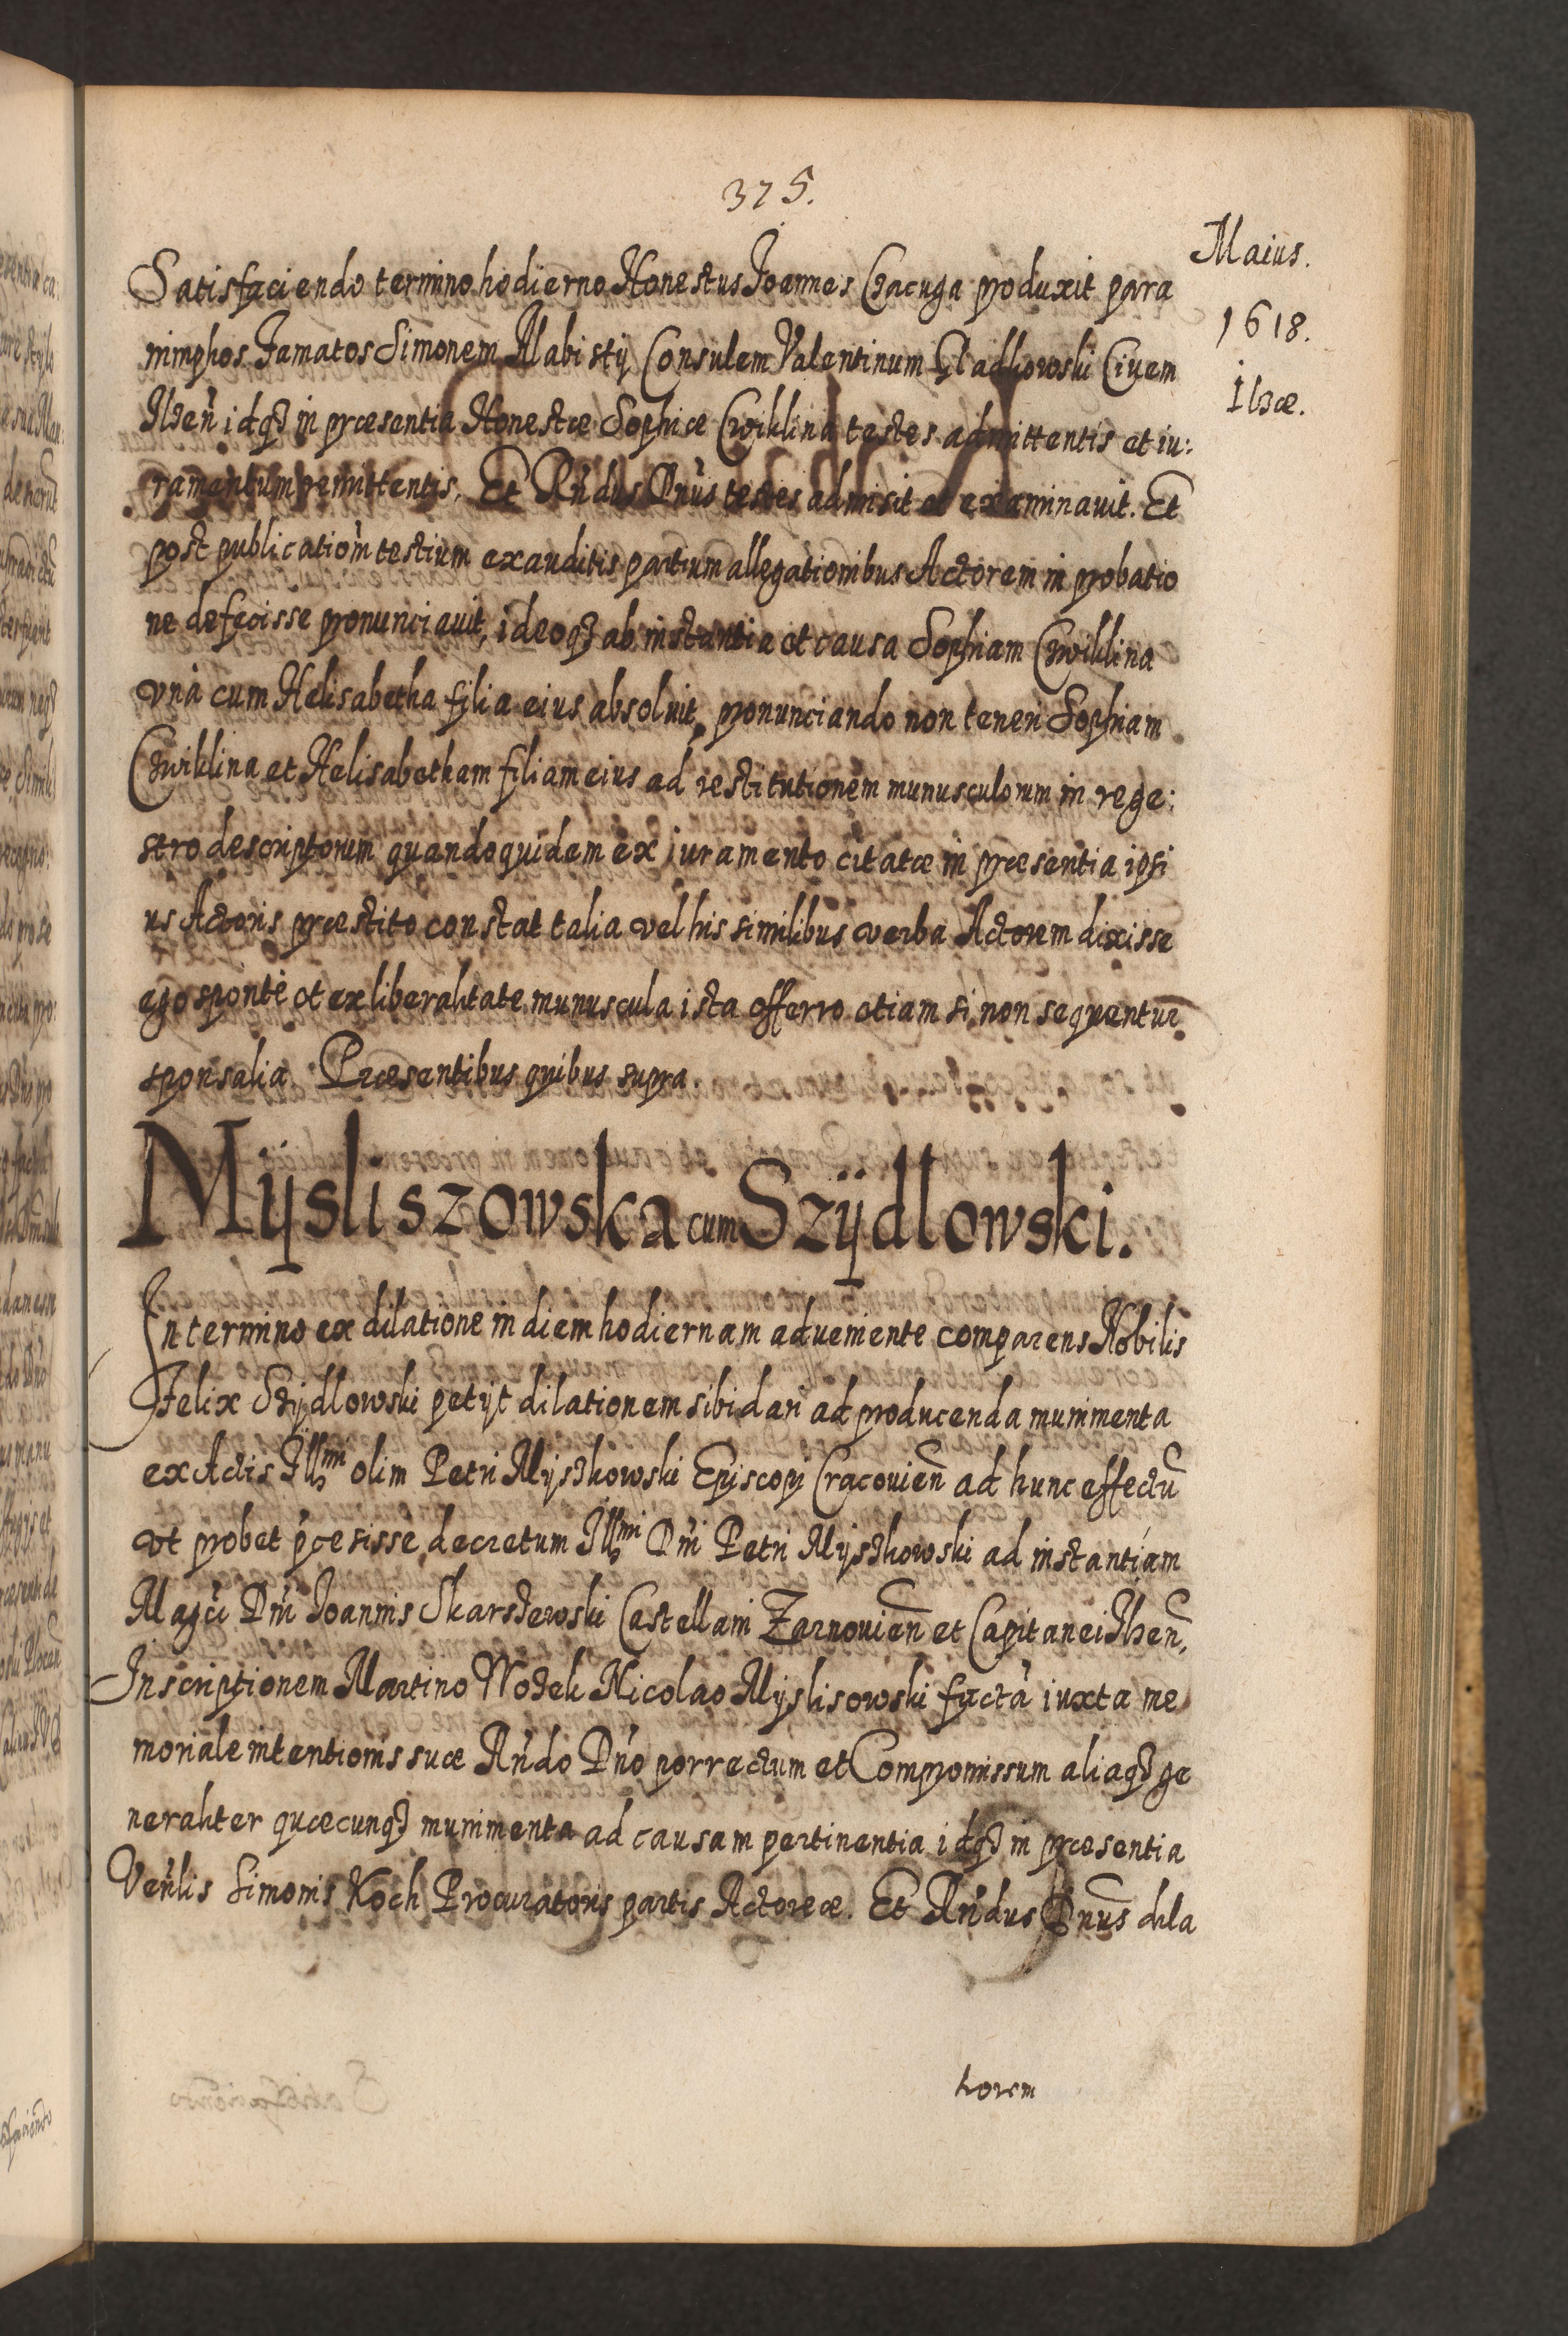 375.
Maius.
1618.
Ilzæ.
Satisfaciendo termino hodierno Honestus Joannes Czacuga produxit para
nimphos Famatos Simonem Mabisty Consulem Valentinum Gladkowski Civem
Ilzen̄ idq3 in præsentia Honestæ Sophiæ Cwiklina testes admittentis et iu:
ramentum remittentis. Et Rn̄dus Dn̄us testes admisit et examinauit. Et
post publicatiom̄ testium exauditis partium allegationibus Actorem in probatio
ne defecisse pronunciauit, ideoq3 ab instantia et causa Sophiam Cwiklina
vnà cum Helisabetha filia eius absoluit, pronunciando non teneri Sophiam
Cwiklina et Helisabetham filiam eius ad restitutionem munusculorum in rege:
stro descriptorum quandoquidem ex iuramento citatæ in præsentia ipsi
us Actoris præstito constat talia vel his similibus verba Actorem dixisse
ego sponte et ex liberalitate munuscula ista offerro etiam si non sequentur
sponsalia. Præsentibus quibus supra.
Mÿsliszowska cum Szÿdlowski.
In termino ex dilatione in diem hodiernam adueniente comparens Nobilis
Felix Szÿdlowski petijt dilationem sibi dari ad producenda munimenta
ex Actis Illmi olim Petri Myszkowski Episcopi Cracouien̄ ad hunc effectū
vt probet præsisse decretum Illmi Dn̄i Petri Myszkowski ad instantiam
Magci Dn̄i Joannis Skarszewski Castellani Zarnouien̄ et Capitanei Ilzen̄,
Inscriptionem Martino Wozek Nicolao Myslisowski factā iuxta me
moriale intentionis suæ Rn̄do Dn̄o porrectum et Compromissum aliaq3 ge
neraliter quæcunq3 munimenta ad causam pertinentia idq3 in præsentia
Ven̄lis Simonis Koch Procuratoris partis Actoreæ. Et Rn̄dus Dn̄us dila
torem